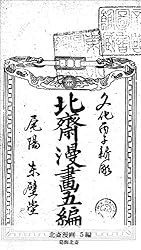 文化丙子新彫
北齋漫畫五編
尾陽 東壁堂
北斎漫画 5編
葛飾北斎